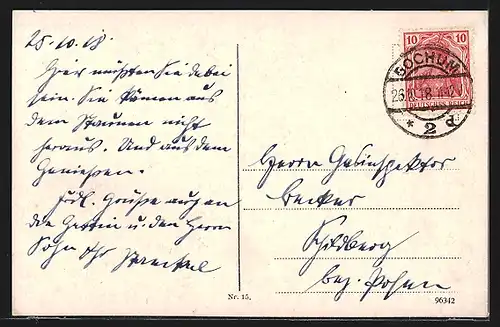 25.10.18.
Hier müßten Sie dabei
sein. Sie kämen aus
dem Staunen nicht
heraus. Und aus dem
Genießen.
Frdl. Grüße auch an
die Gattin u. den Herrn
Sohn Ihr
10 10
BOCHUM
26.10.18
DEUTSCHES REICH
* 2 d
Herrn
Becker
Schildberg
bez. Posen
Nr. 15.
96342